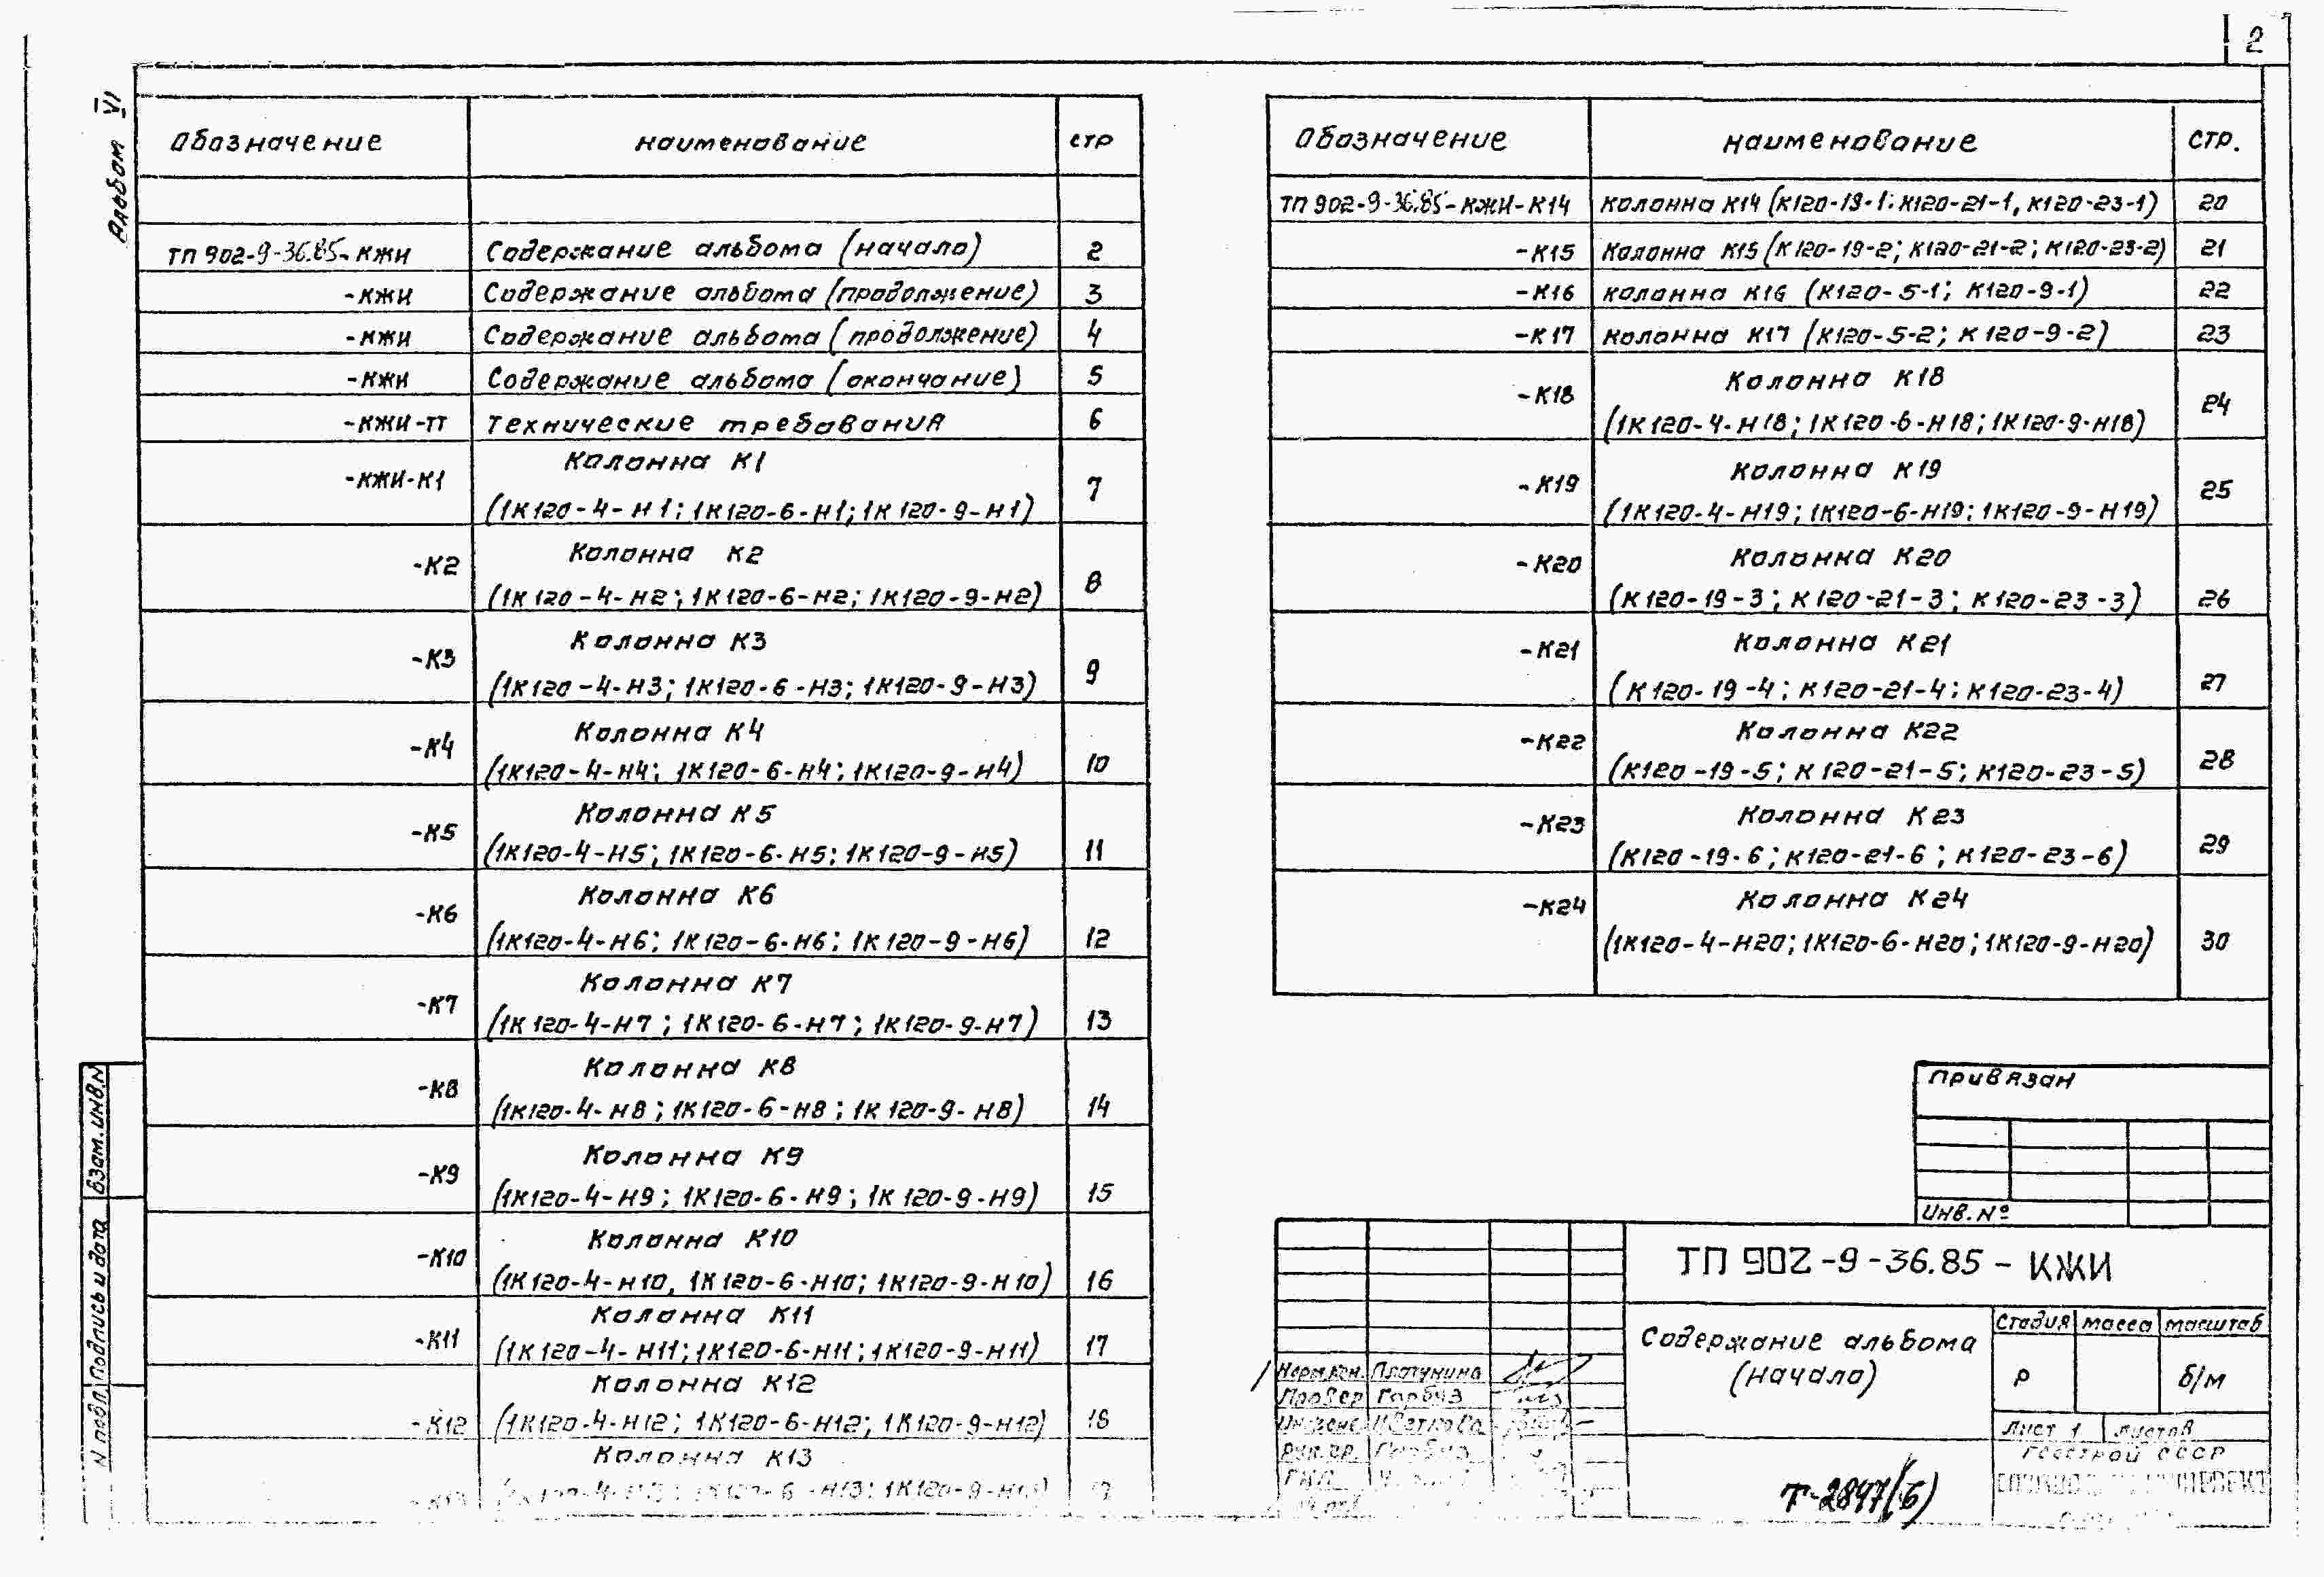 2
Альбом VI
Обозначение наименование стр
ТП 902-9-36.85-КЖИ Содержание альбома (начало) 2
-КЖИ Содержание альбома (продолжение) 3
-КЖИ Содержание альбома (продолжение) 4
-КЖИ Содержание альбома (окончание) 5
-КЖИ-ТТ Технические требования 6
Колонна К1
-КЖИ-К1 7
(1К120-4-Н1; 1К120-6-Н1; 1К120-9-Н1)
Колонна К2
-К2 8
(1К120-4-Н2; 1К120-6-Н2; 1К120-9-Н2)
Колонна К3
-К3 9
(1К120-4-Н3; 1К120-6-Н3; 1К120-9-Н3)
Колонна К4
-К4
(1К120-4-Н4; 1К120-6-Н4; 1К120-9-Н4) 10
Колонна К5
-К5
(1К120-4-Н5; 1К120-6-Н5; 1К120-9-Н5) 11
Колонна К6
-К6
(1К120-4-Н6; 1К120-6-Н6; 1К120-9-Н6) 12
Колонна К7
-К7
(1К120-4-Н7; 1К120-6-Н7; 1К120-9-Н7) 13
Колонна К8
-К8
(1К120-4-Н8; 1К120-6-Н8; 1К120-9-Н8) 14
Колонна К9
-К9
(1К120-4-Н9; 1К120-6-Н9; 1К120-9-Н9) 15
Колонна К10
-К10
(1К120-4-Н10, 1К120-6-Н10; 1К120-9-Н10) 16
Колонна К11
-К11 (1К120-4-Н11; 1К120-6-Н11; 1К120-9-Н11) 17
Колонна К12
-К12 (1К120-4-Н12; 1К120-6-Н12; 1К120-9-Н12) 18
Колонна К13
1К120-9-Н13)
Обозначение наименование стр.
ТП 902-9-36.85-КЖИ-К14 Колонна К14 (К120-19-1; К120-21-1, К120-23-1) 20
-К15 Колонна К15 (К120-19-2; К120-21-2; К120-23-2) 21
-К16 колонна К16 (К120-5-1; К120-9-1) 22
-К17 колонна К17 (К120-5-2; К120-9-2) 23
Колонна К18
-К18 24
(1К120-4-Н18; 1К120-6-Н18; 1К120-9-Н18)
Колонна К19
-К19 25
(1К120-4-Н19; 1К120-6-Н19; 1К120-9-Н19)
Колонна К20
-К20
(К120-19-3; К120-21-3; К120-23-3) 26
Колонна К21
-К21
(К120-19-4; К120-21-4; К120-23-4) 27
Колонна К22
-К22
(К120-19-5; К120-21-5; К120-23-5) 28
Колонна К23
-К23
(К120-19-6; К120-21-6; К120-23-6) 29
Колонна К24
-К24
(1К120-4-Н20; 1К120-6-Н20; 1К120-9-Н20) 30
Взам. инв. N
Подпись и дата
N подл.
Привязан
Инв. №
ТП 902-9-36.85 - КЖИ
Содержание альбома
(начало)
Стадия масса масштаб
Р б/м
Лист 1 Листов
Госстрой СССР
Норм.кон. Платунина
Провер Гарбуз
Цветкова
Рук.гр. Гарбуз
Т-2847(6)